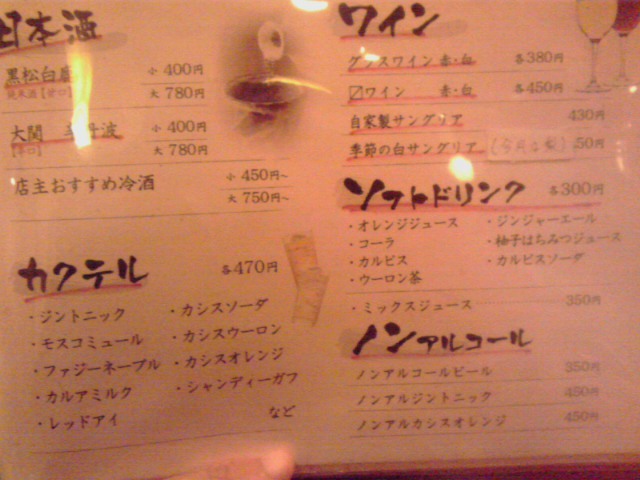 日本酒
黒松白鹿 小 400円
大 780円
大関 小 400円
【辛口】 大 780円
店主おすすめ冷酒 小 450円~
大 750円~
カクテル 各470円
・ジントニック
・モスコミュール
・ファジーネーブル
・カルアミルク
・レッドアイ
・カシスソーダ
・カシスウーロン
・カシスオレンジ
・シャンディーガフ
など
ワイン
グラスワイン 赤・白 各380円
ワイン 赤・白 各450円
自家製サングリア 430円
季節の白サングリア 50円
ソフトドリンク 各300円
・オレンジジュース
・コーラ
・カルピス
・ウーロン茶
・ジンジャーエール
・柚子はちみつジュース
・カルピスソーダ
・ミックスジュース 350円
ノンアルコール
ノンアルコールビール 350円
ノンアルジントニック 450円
ノンアルカシスオレンジ 450円